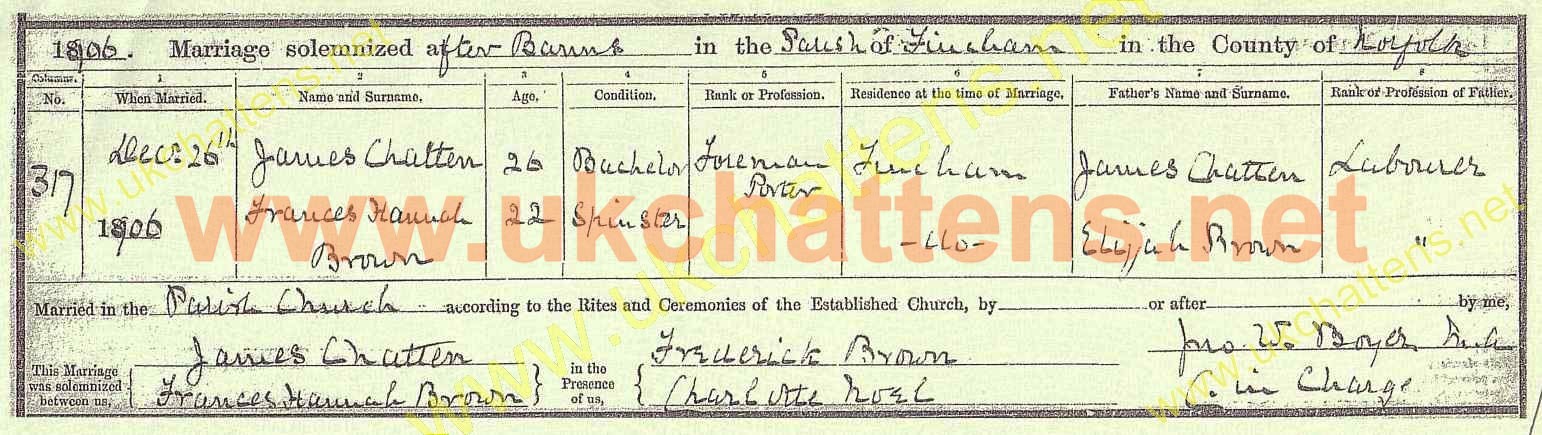 1906. Marriage solemnized after Banns in the Parish of Fincham in the County of Norfolk
Columns. 1 2 3 4 5 6 7 8
No. When Married. Name and Surname. Age. Condition. Rank or Profession. Residence at the time of Marriage. Father's Name and Surname. Rank or Profession of Father.
317 Decr. 26th James Chatten 26 Bachelor Foreman Porter Fincham James Chatten Labourer
1906 Frances Hannah Brown 22 Spinster -do- Elijah Brown "
Married in the Parish Church according to the Rites and Ceremonies of the Established Church, by or after by me,
James Chatten Frederick Brown Jno. W. Boyer M.A
This Marriage was solemnized between us, Frances Hannah Brown in the Presence of us, Charlotte Noel C. in Charge
www.ukchattens.net
www.ukchattens.net
www.ukchattens.net
www.ukchattens.net
www.ukchattens.net
www.ukchattens.net